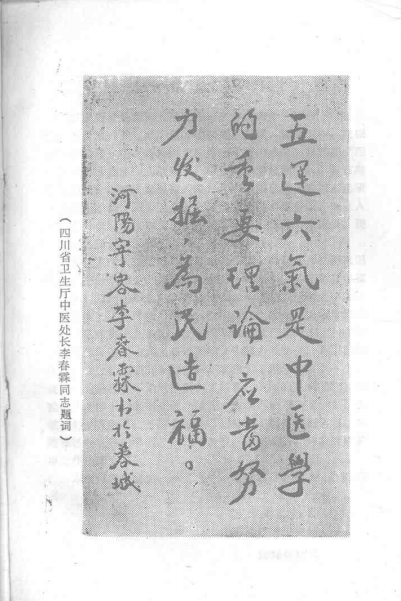 五运六氣是中医學
的重要理論，应當努
力发掘，為民造福。
河陽宇客李春霖书於蓉城
（四川省卫生厅中医处长李春霖同志题词）